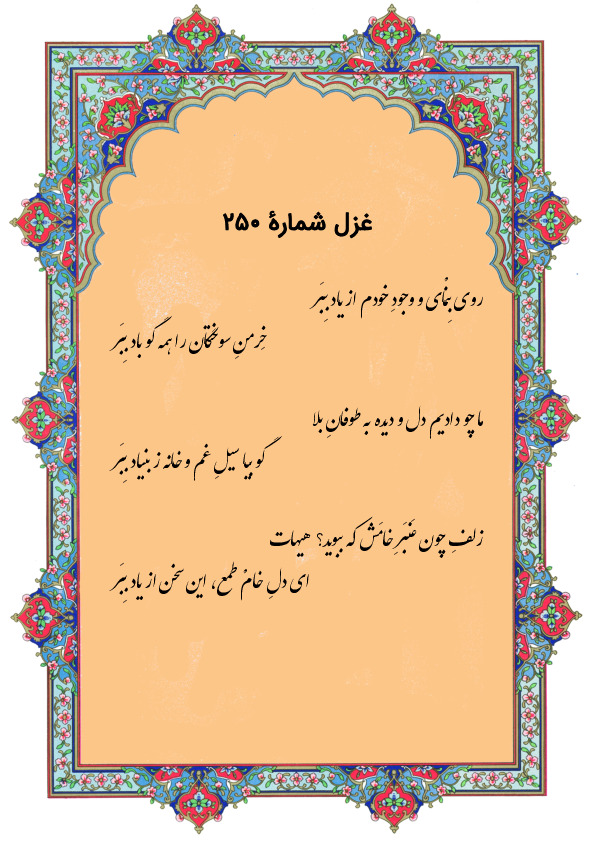 غزل شمارهٔ ۲۵۰
روی بِنْمای و وجودِ خودم از یاد بِبَر
خِرمنِ سوختگان را همه گو باد بِبَر
ما چو دادیم دل و دیده به طوفانِ بلا
گو بیا سیلِ غم و خانه ز بنیاد بِبَر
زلفِ چون عَنبَرِ خامَش که ببوید؟ هیهات
ای دلِ خامْ طمع، این سخن از یاد بِبَر